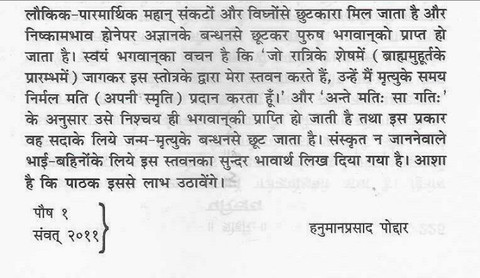 लौकिक-पारमार्थिक महान् संकटों और विघ्नोंसे छुटकारा मिल जाता है और
निष्कामभाव होनेपर अज्ञानके बन्धनसे छूटकर पुरुष भगवान्‌को प्राप्त हो
जाता है। स्वयं भगवान्‌का वचन है कि 'जो रात्रिके शेषमें (ब्राह्ममुहूर्तके
प्रारम्भमें) जागकर इस स्तोत्रके द्वारा मेरा स्तवन करते हैं, उन्हें मैं मृत्युके समय
निर्मल मति (अपनी स्मृति) प्रदान करता हूँ।' और 'अन्ते मतिः सा गतिः'
के अनुसार उसे निश्चय ही भगवान्‌की प्राप्ति हो जाती है तथा इस प्रकार
वह सदाके लिये जन्म-मृत्युके बन्धनसे छूट जाता है। संस्कृत न जाननेवाले
भाई-बहिनोंके लिये इस स्तवनका सुन्दर भावार्थ लिख दिया गया है। आशा
है कि पाठक इससे लाभ उठावेंगे।
पौष १
संवत् २०११
हनुमानप्रसाद पोद्दार